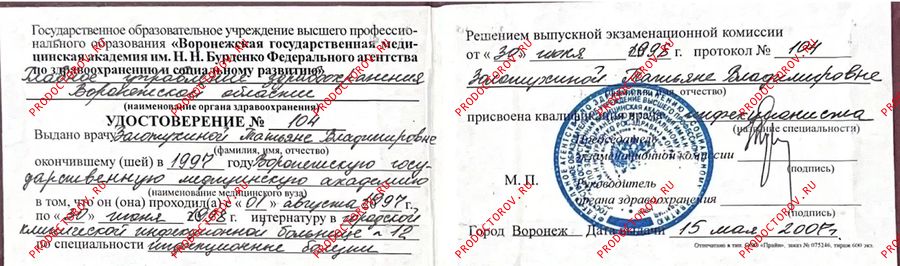 Государственное образовательное учреждение высшего профессио-
нального образования «Воронежская государственная меди-
цинская академия им. Н. Н. Бурденко Федерального агентства
по здравоохранению и социальному развитию»
отдела здравоохранения
Воронежской области
(наименование органа здравоохранения)
УДОСТОВЕРЕНИЕ № 104
Выдано врачу Залотухиной Татьяне Владимировне
(фамилия, имя, отчество)
окончившему (шей) в 1997 году Воронежскую госу-
дарственную медицинскую академию
(наименование медицинского вуза)
в том, что он (она) проходил(а) с «01» августа 1997 г.,
по «30» июня 1998 г. интернатуру в городской
клинической инфекционной больнице №12
по специальности инфекционные болезни
Решением выпускной экзаменационной комиссии
от «30» июня 1998 г. протокол № 104
Залотухиной Татьяне Владимировне
(фамилия, имя, отчество)
присвоена квалификация врача инфекциониста
(название специальности)
Председатель
экзаменационной комиссии
(подпись)
М. П.
Руководитель
органа здравоохранения
(подпись)
Город Воронеж Дата выдачи 15 мая 2008 г.
Отпечатано в тип. ООО «Прайм», заказ № 075246, тираж 600 экз.
PRODOCTOROV.RU